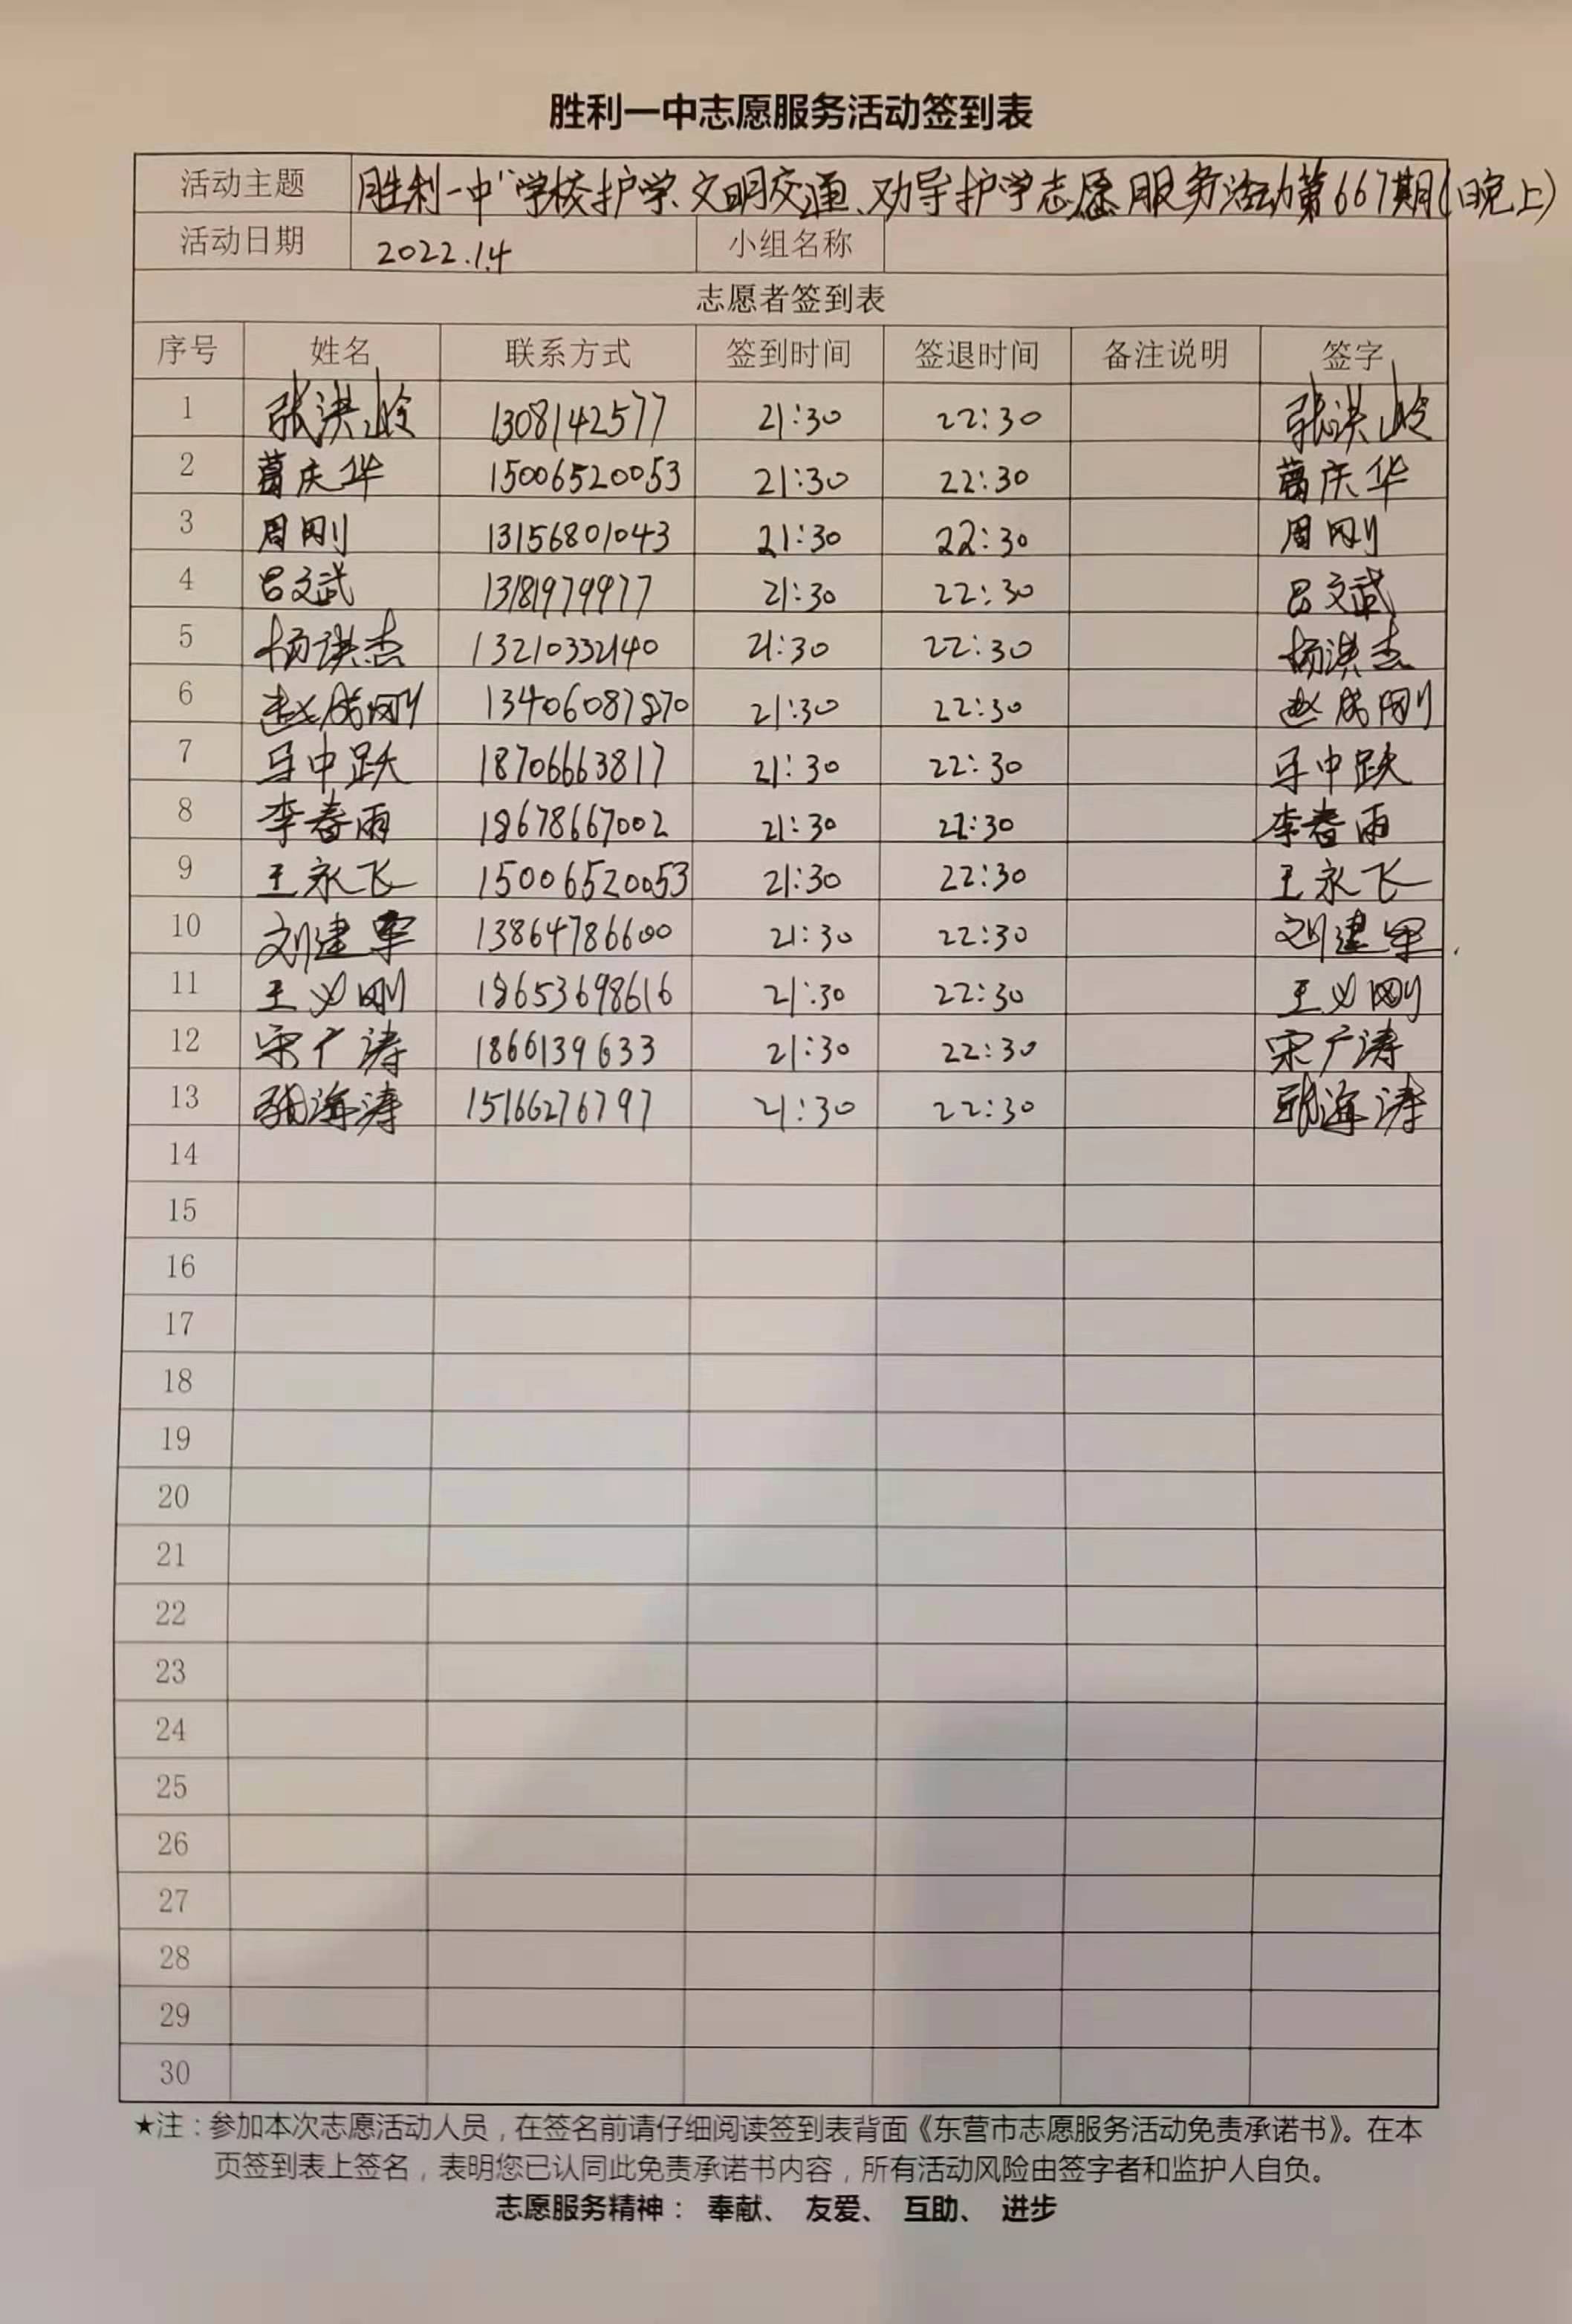 胜利一中志愿服务活动签到表
活动主题 胜利一中"学校护学、文明交通、劝导护学志愿服务活动第667期(晚上)
活动日期 2022.1.4 小组名称
志愿者签到表
序号 姓名 联系方式 签到时间 签退时间 备注说明 签字
1 张洪岭 1308142577 21:30 22:30 张洪岭
2 葛庆华 15006520053 21:30 22:30 葛庆华
3 周刚 13156801043 21:30 22:30 周刚
4 吕文武 13181979977 21:30 22:30 吕文武
5 杨洪杰 13210332140 21:30 22:30 杨洪杰
6 赵成刚 13406087870 21:30 22:30 赵成刚
7 马中跃 18706663817 21:30 22:30 马中跃
8 李春雨 18678667002 21:30 22:30 李春雨
9 王永飞 15006520053 21:30 22:30 王永飞
10 刘建军 13864786600 21:30 22:30 刘建军
11 王义刚 18653698616 21:30 22:30 王义刚
12 宋广涛 1866139633 21:30 22:30 宋广涛
13 张海涛 15166276797 21:30 22:30 张海涛
14
15
16
17
18
19
20
21
22
23
24
25
26
27
28
29
30
★注：参加本次志愿活动人员，在签名前请仔细阅读签到表背面《东营市志愿服务活动免责承诺书》。在本
页签到表上签名，表明您已认同此免责承诺书内容，所有活动风险由签字者和监护人自负。
志愿服务精神： 奉献、 友爱、 互助、 进步